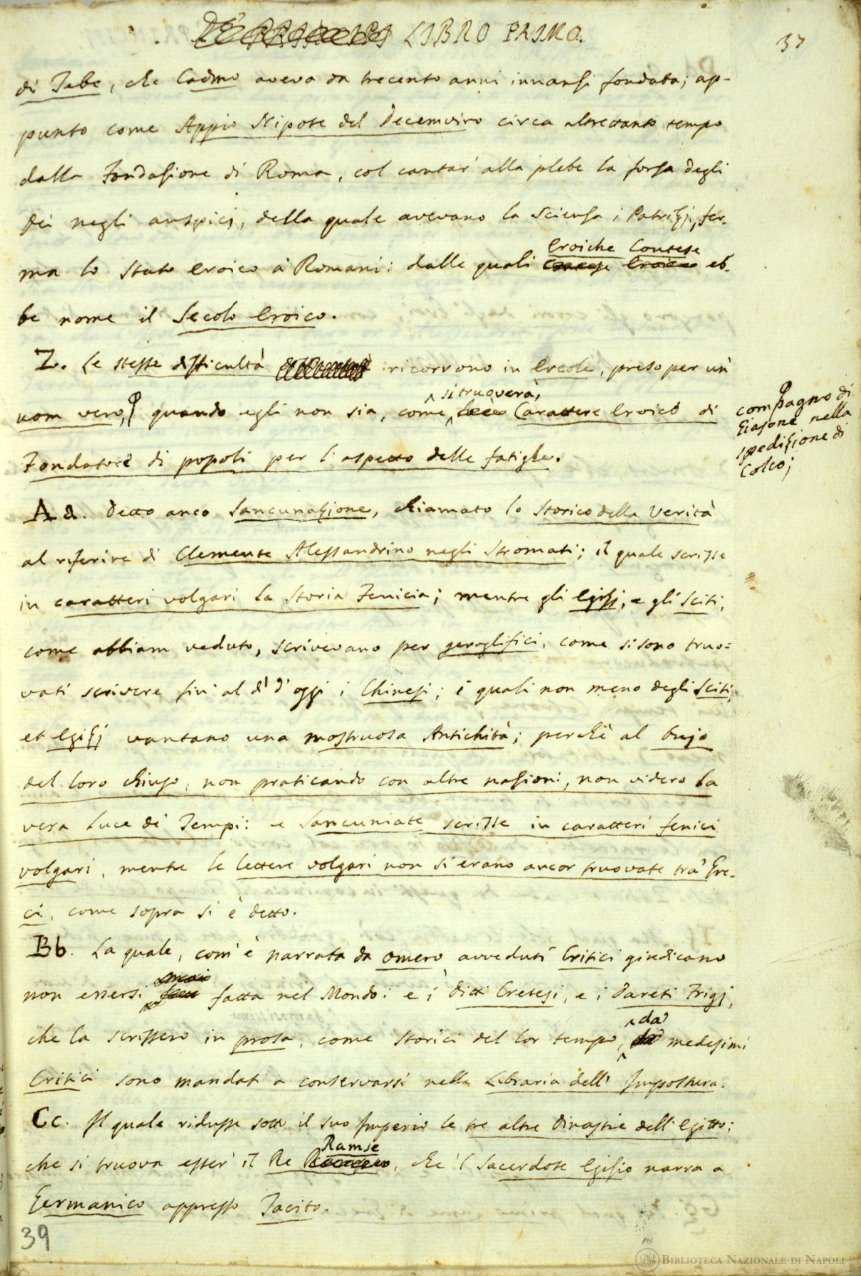 LIBRO PRIMO.
37
di Tebe, che Cadmo aveva da trecento anni innanzi fondata; ap-
punto come Appio Nipote del Decemviro circa altrettanto tempo
dalla Fondazione di Roma, col cantar' alla plebe la forza degli
Dei negli auspicj, della quale avevano la Scienza i Patrizj, fer-
ma lo Stato eroico a' Romani: dalle quali Eroiche Contese eb-
be nome il Secolo Eroico.
Z. Le stesse difficultà ricorrono in Ercole, preso per un'
uom vero, quando egli non sia, come si truoverà, Carattere Eroico di
compagno di
Giasone nella
spedizione di
Colco;
Fondatore di popoli per l'aspetto delle fatighe.
Aa. Detto anco Sancunazione, chiamato lo Storico della Verità
al riferire di Clemente Alessandrino negli Stromati; il quale scrisse
in caratteri volgari la Storia Fenicia; mentre gli Egizj, e gli Sciti,
come abbiam veduto, scrivevano per geroglifici, come si sono truo-
vati scrivere fin' al dì d'oggi i Chinesi; i quali non meno degli Sciti,
et Egizj vantano una mostruosa Antichità; perchè al bujo
del loro chiuso, non praticando con altre nazioni, non videro la
vera luce de' Tempi: e Sancuniate scrisse in caratteri fenici
volgari, mentre le lettere volgari non si erano ancor truovate tra' Gre-
ci, come sopra si è detto.
Bb. La quale, com' è narrata da Omero avveduti Critici giudicano
non essersi fatta nel Mondo: e i Ditti Cretesi, e i Dareti Frigj,
che la scrissero in prosa, come Storici del lor tempo, da' medesimi
Critici sono mandati a conservarsi nella Libraria dell' Impostura.
Cc. Il quale ridusse sotto il suo Imperio le tre altre Dinastie dell' Egitto;
che si truova esser' il Re Ramse, che 'l Sacerdote Egizio narra a
Germanico appresso Tacito.
39
BIBLIOTECA NAZIONALE DI NAPOLI